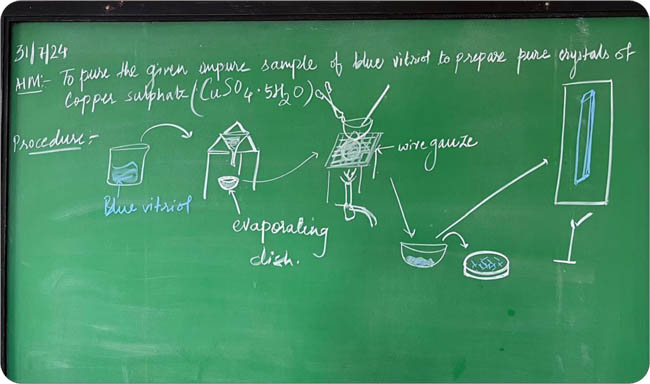 31/7/24
AIM:- To pure the given impure sample of blue vitriol to prepare pure crystals of
Copper sulphate (CuSO4·5H2O)
Procedure:-
wire gauze
Blue vitriol
evaporating
dish.